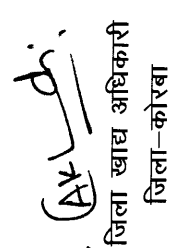 जिला खाद्य अधिकारी
जिला–कोरबा